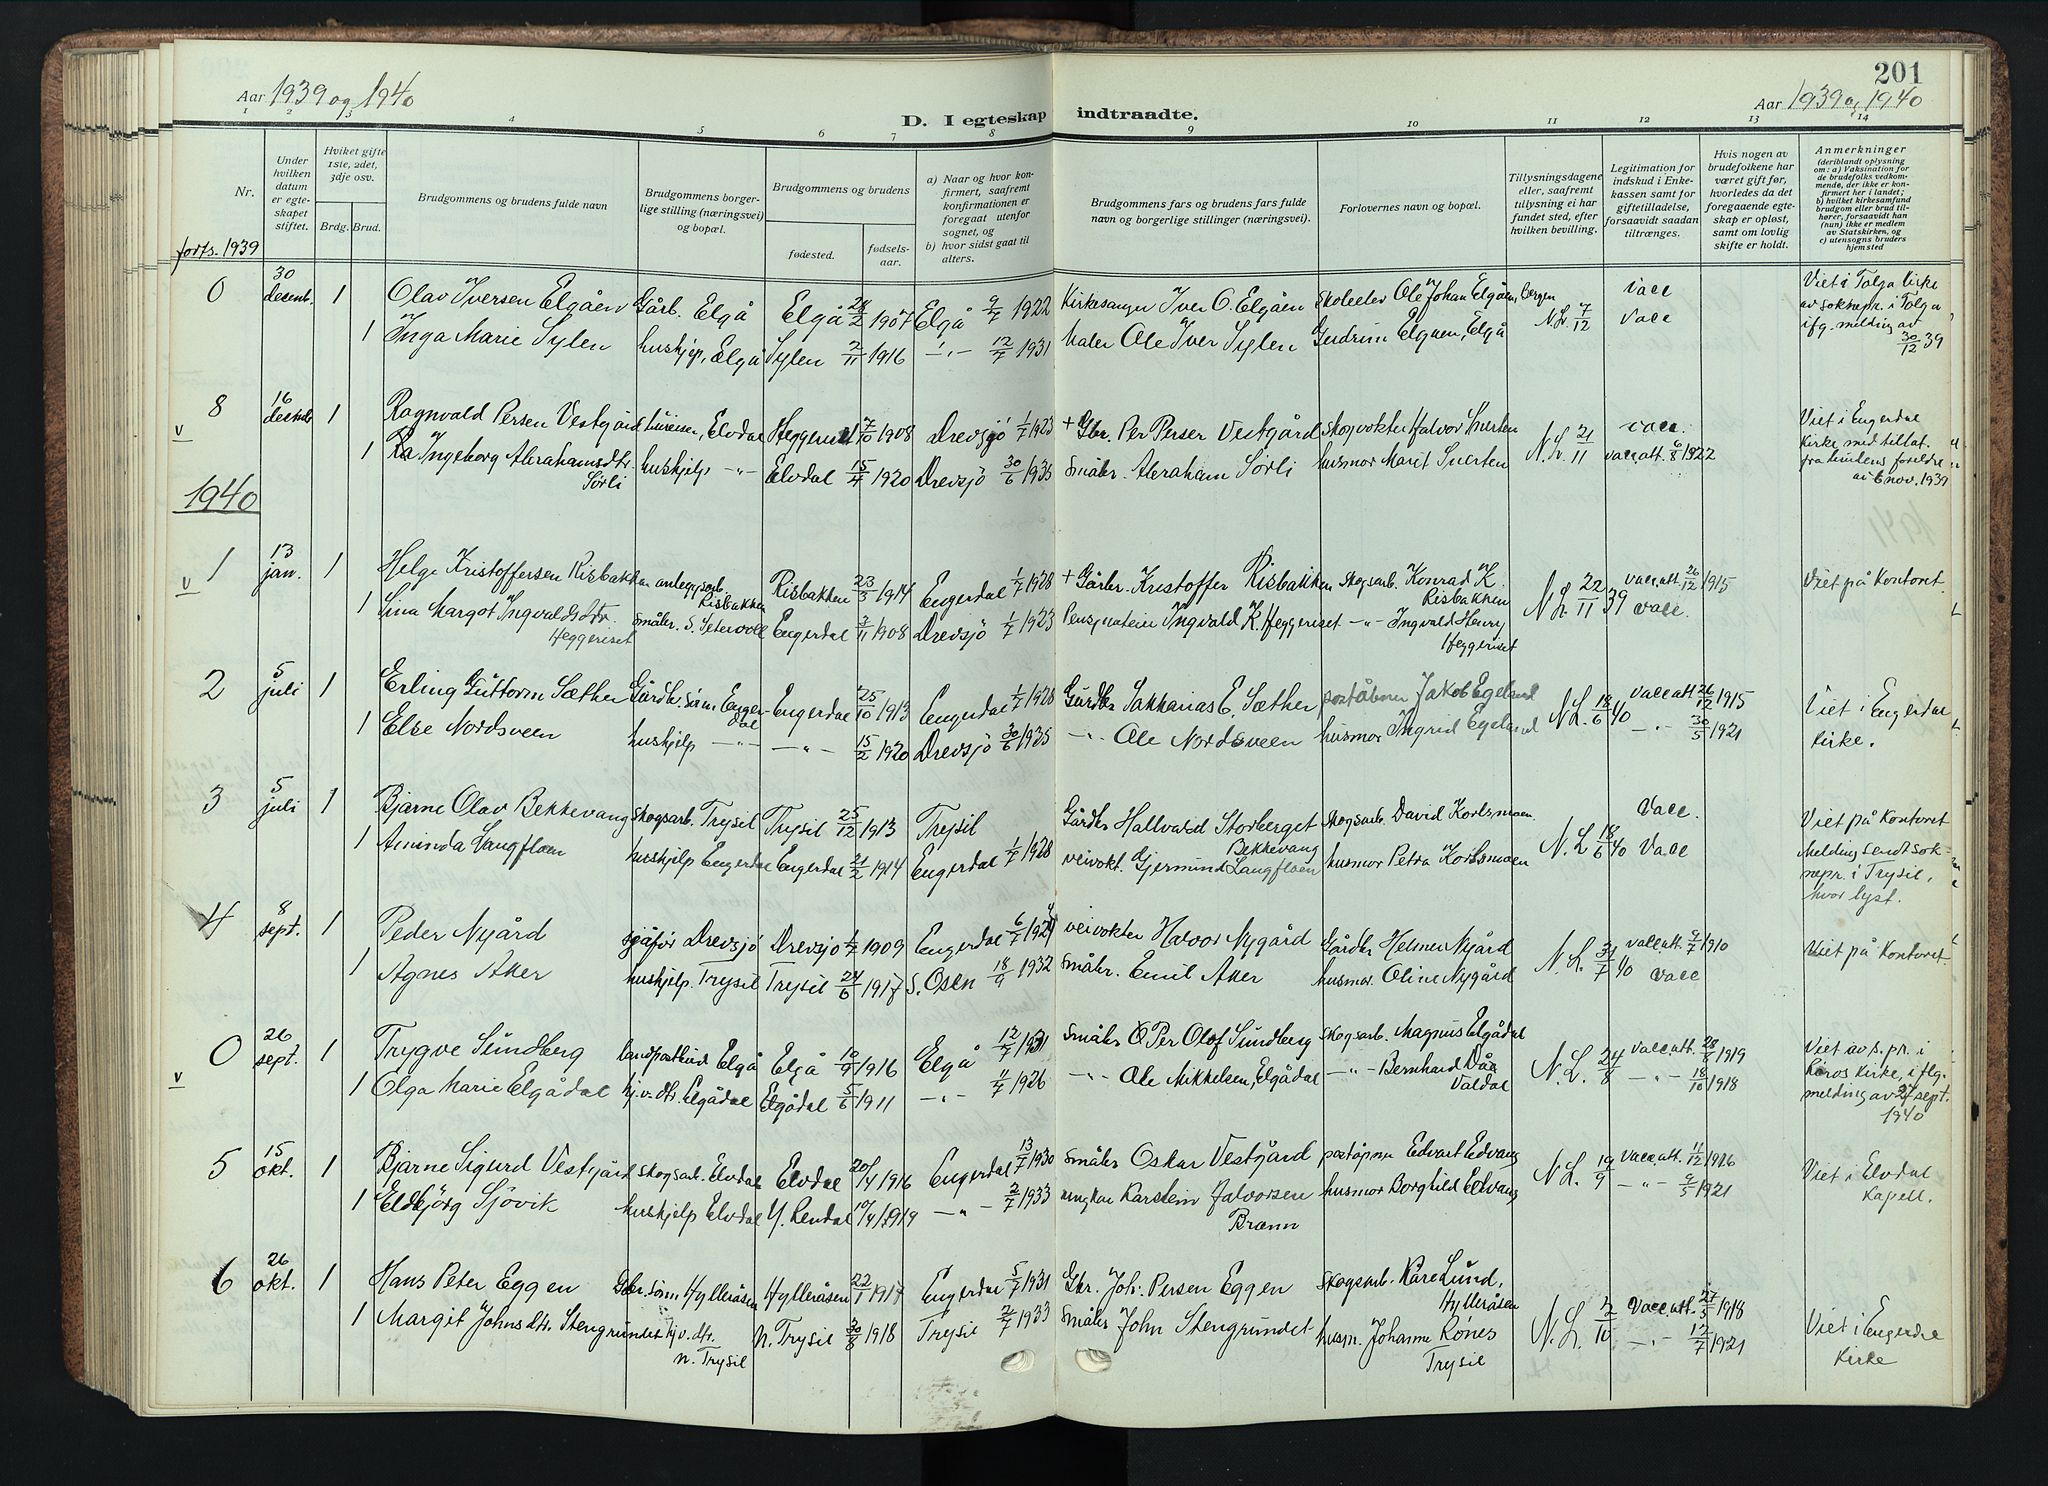 201
Aar 1939 og 1940
D. I egteskap indtraadte.
Aar 1939 og 1940
1 2 3 4 5 6 7 8 9 10 11 12 13 14
Nr.
Under hvilken datum er egteskapet stiftet.
Hviket gifte 1ste, 2det, 3dje osv.
Brdg. Brud.
Brudgommens og brudens fulde navn
Brudgommens borgerlige stilling (næringsvei) og bopæl.
Brudgommens og brudens
fødested.
fødselsaar.
a) Naar og hvor konfirmert, saafremt konfirmationen er foregaat utenfor sognet, og
b) hvor sidst gaat til alters.
Brudgommens fars og brudens fars fulde navn og borgerlige stillinger (næringsvei).
Forlovernes navn og bopæl.
Tillysningsdagene eller, saafremt tillysning ei har fundet sted, efter hvilken bevilling.
Legitimation for indskud i Enkekassen samt for giftetilladelse, forsaavidt saadan tiltrænges.
Hvis nogen av brudefolkene har været gift før, hvorledes da det foregaaende egteskap er opløst, samt om lovlig skifte er holdt.
Anmerkninger
(deriblandt oplysning om: a) Vaksination for de brudefolks vedkommende, der ikke er konfirmert her i landet; b) hvilket kirkesamfund brudgom eller brud tilhører, forsaavidt han (hun) ikke er medlem av Statskirken, og c) utensogns bruders hjemsted
forts. 1939
0 30 decemb. 1 Olav Iversen Elgåen Gårb. Elgå Elgå 28/2 1907 Elgå 9/7 1922 Kirkesanger Iver O. Elgåen Skoleelev Ole Johan Elgåen, Bergen N.L. 7/12 vacc Viet i Tolga kirke av soknepr. i Tolga ifg. melding av 30/12 39
1 Inga Marie Sylen hushjelp, Elgå Sylen 2/11 1916 -"- 12/7 1931 Maler Ole Iver Sylen Gudrun Elgåen, Elgå vacc
v 8 16 desemb 1 Ragnvald Persen Vestgård Elvdal Heggeriset 7/10 1908 Drevsjø 1/7 1923 + Gbr. Per Persen Vestgård skogvokter Halvor Snerten N.L. 21/11 vacc. Viet i Engerdal Kirke med tillat. fra brudens foreldre av 6 nov. 1939
1 Ingeborg Abrahamsdtr. Sørli hushjelp -"- Elvdal 15/4 1920 Drevsjø 30/6 1935 småbr. Abraham Sørli husmor Marit Snerten vacc.att. 6/8 1922
1940
v 1 13 jan. 1 Helge Kristoffersen Risbakken anleggsarb. Risbakken Risbakken 23/3 1914 Engerdal 1/7 1928 + Gårbr. Kristoffer Risbakken skogsarb. Konrad K. Risbakken N.L. 22/11 39 vacc att. 26/12 1915 Viet på Kontoret.
1 Lina Margot Ingvaldsdtr. Heggeriset småbr. S. Setervoll Engerdal 3/11 1908 Drevsjø 1/7 1923 Ingvald K. Heggeriset -"- Ingvald Henry Heggeriset vacc.
2 5 juli 1 Erling Guttorm Sæther Gårdbr.sønn Engerdal Engerdal 25/10 1913 Engerdal 1/7 1928 Gårdbr Sakkarias E. Sæther poståbner Jakob Egeland N.L. 18/6 40 vacc att 26/12 1915 Viet i Engerdal kirke.
1 Else Nordsveen hushjelp -"- -"- 15/2 1920 Drevsjø 30/6 1935 -"- Ole Nordsveen husmor Ingrid Egeland -"- 30/5 1921
3 5 juli 1 Bjarne Olav Bekkevang skogsarb. Trysil Trysil 25/12 1913 Trysil Gårdbr Hallvard Storberget Bekkevang skogsarb. David Korsmoen N.L 18/6 40 vacc. Viet på Kontoret Melding sendt soknepr. i Trysil, hvor lyst.
1 Aminda Langfloen hushjelp Engerdal Engerdal 21/2 1914 Engerdal 1/7 1928 veivokt. Gjermund Langfloen husmor Petra Korsmoen vacc
4 8 sept. 1 Peder Nygård sjåfør Drevsjø Drevsjø 1909 Engerdal 6/7 1924 veivokter Halvor Nygård Gårdbr Helmer Nygård N.L. 31/7 40 vacc.att. 9/7 1910 Viet på Kontoret.
1 Agnes Aker hushjelp. Trysil Trysil 24/6 1917 S. Osen 18/9 1932 småbr. Emil Aker husmor. Oline Nygård vacc
v 0 26 sept. 1 Trygve Sundberg landpostbud Elgå Elgå 10/9 1916 Elgå 12/7 1931 småbr Per Olof Sundberg skogsarb. Magnus Elgådal N.L. 24/8 vacc att. 28/8 1919 Viet av s.pr. i Røros Kirke, iflg. melding av 27 sept. 1940
1 Olga Marie Elgådal hj.v. dtr. Elgådal Elgådal 5/6 1911 -"- 11/7 1926 -"- Ole Mikkelsen, Elgådal -"- Bernhard Dåa Valdal -"- 18/10 1918
5 15 okt. 1 Bjarne Sigurd Vestgård skogsarb. Elvdal Elvdal 20/4 1916 Engerdal 13/7 1930 småbr Oskar Vestgård poståpner Edvart Edvang N.L. 19/9 vacc.att. 11/12 1916 Viet i Elvdal Kapell.
1 Eldbjörg Sjövik hushjelp Elvdal Y. Rendal 10/4 1919 -"- 2/7 1933 Karstein Halvorsen Brænn husmor Borghild Edvang -"- 9/5 1921
6 26 okt. 1 Hans Peter Eggen Gbr.sønn Hylleråsen Hylleråsen 22/1 1917 Engerdal 5/7 1931 Gbr. Joh. Persen Eggen skogsarb. Kåre Lund, Hylleråsen N.L. 2/10 vacc.att. 27/5 1918 Viet i Engerdal Kirke
1 Margit Johnsdtr. Stengrundet hj.v. dtr. n. Trysil n. Trysil 30/8 1918 Trysil 2/7 1933 småbr John Stengrundet husm. Johanne Rønes Trysil -"- 12/7 1921